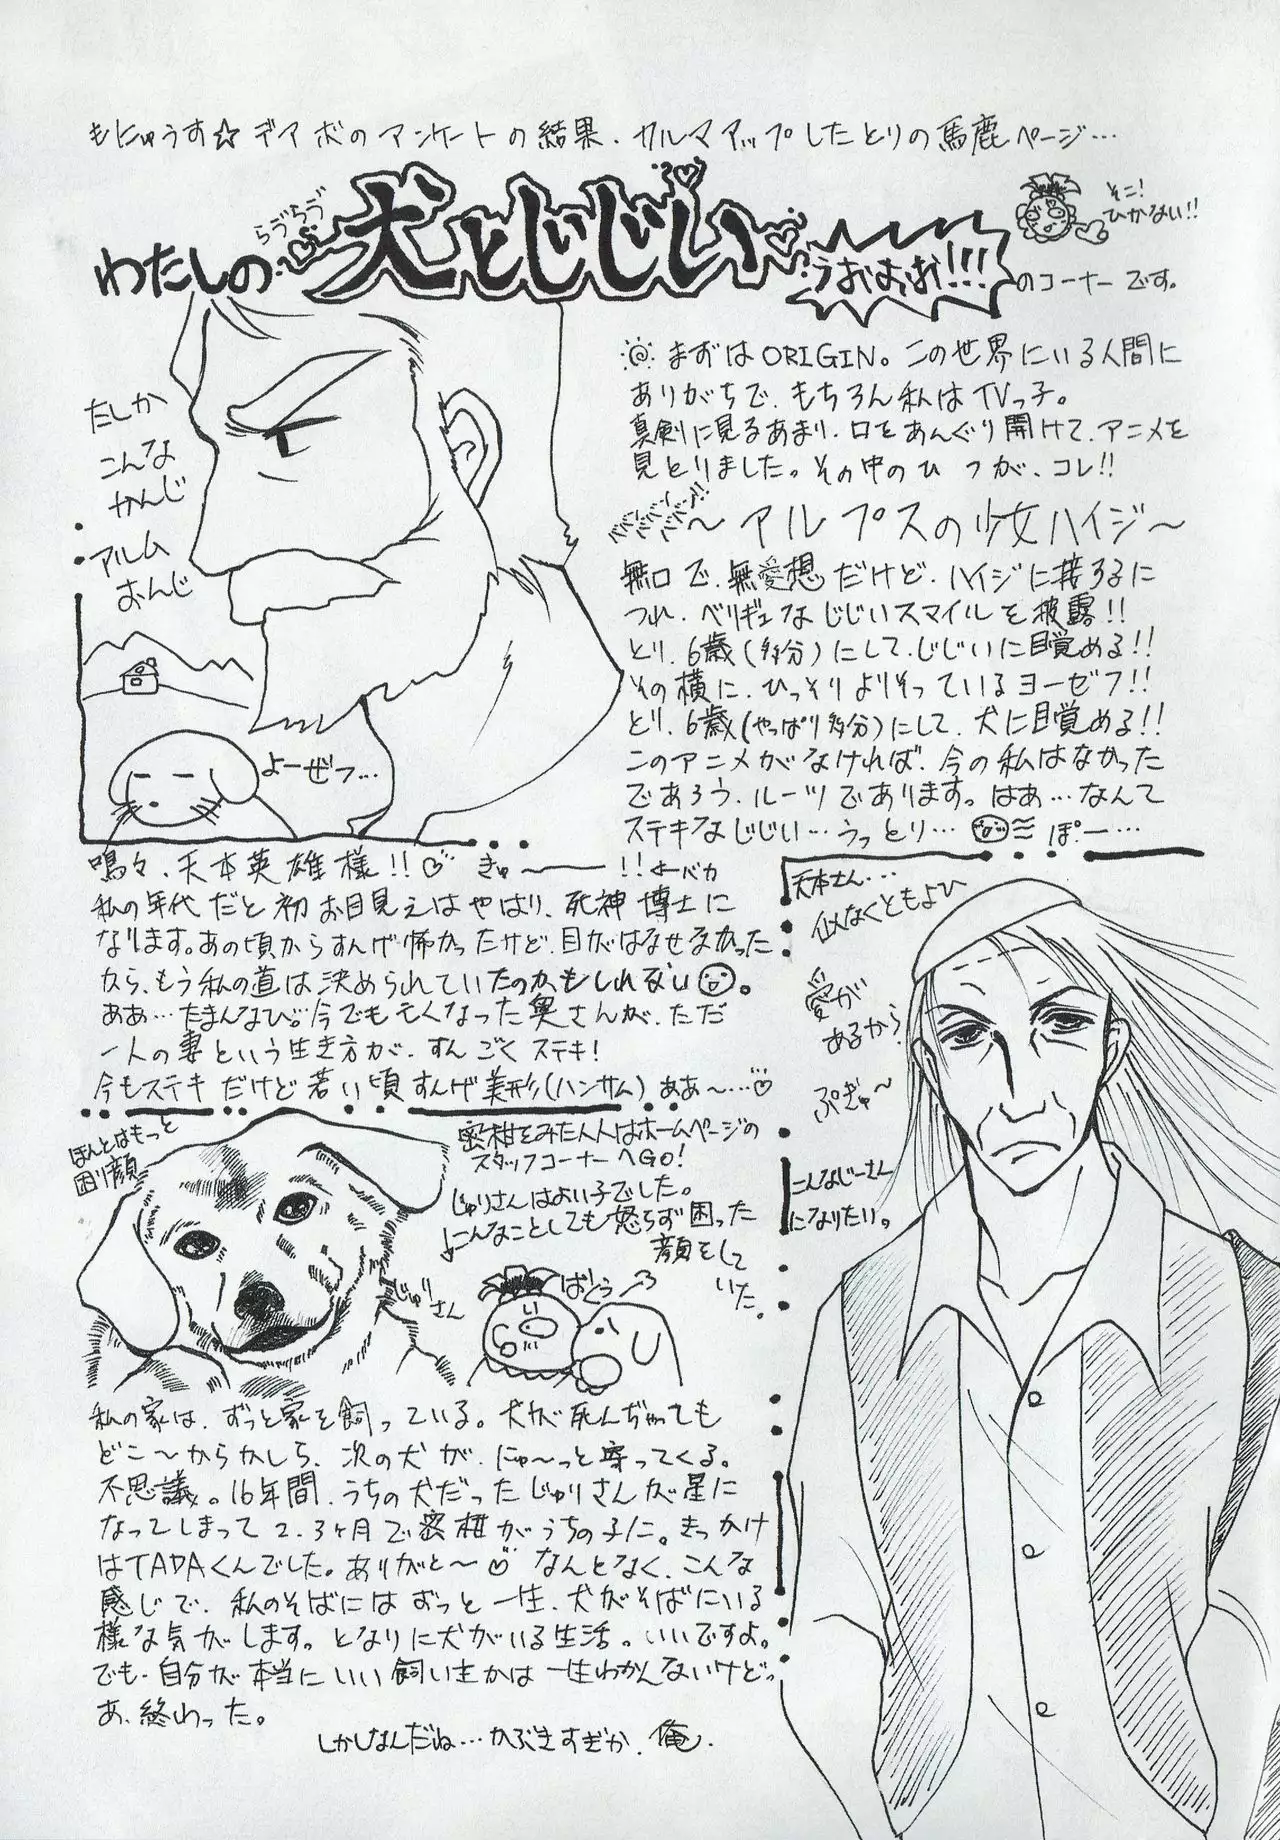 もにゅうす☆デアボのアンケートの結果、カルマアップしたとりの馬鹿ページ…
わたしの
らぶらぶ
犬とじじい
うおぉぉ!!!
のコーナーです。
そこ!
ひかない!!
たしか
こんな
かんじ
アルム
おんじ
よーぜフ…
まずはORIGIN。この世界にいる人間に
ありがちで、もちろん私はTVっ子。
真剣に見るあまり、口をあんぐり開けて、アニメを
見とりました。その中のひとつが、コレ!!
～アルプスの少女ハイジ～
無口で、無愛想だけど、ハイジに接するに
つれ、ベリギュなじじいスマイルを披露!!
とり、6歳(多分)にして、じじいに目覚める!!
その横に、ひっそりよりそっているヨーゼフ!!
とり、6歳(やっぱり多分)にして、犬に目覚める!!
このアニメがなければ、今の私はなかった
であろう、ルーツであります。はあ…なんて
ステキなじじい…うっとり… ぽー…
嗚々、天本英雄様!!♡ きゅ～――!!←バカ
私の年代だと初お目見えはやはり、死神博士に
なります。あの頃からすんげ怖かったけど、目がはなせなかった
から、もう私の道は決められていたのかもしれない。
ああ…たまんなひ。今でも亡くなった奥さんが、ただ
一人の妻という生き方が、すんごくステキ!
今もステキだけど若い頃すんげ美形(ハンサム)ああ～…♡
天本さん…
似なくともよひ
愛が
あるから
ぷぎゅ～
こんなじーさん
になりたい。
ほんとはもっと
困り顔
密柑をみた人人はホームページの
スタッフコーナーへGO!
じゅりさんはよい子でした。
こんなことしても怒らず困った
顔をして
いた。
じゅりさん
ばくぅ
私の家は、ずっと家を飼っている。犬が死んぢゃっても
どこ～からかしら、次の犬が、にゅ～っと寄ってくる。
不思議。16年間、うちの犬だったじゅりさんが星に
なってしまって2、3ヶ月で密柑がうちの子に。きっかけ
はTADAくんでした。ありがと～♡なんとなく、こんな
感じで、私のそばにはずっと一生、犬がそばにいる
様な気がします。となりに犬がいる生活。いいですよ。
でも、自分が本当にいい飼い主かは一生わかんないけどっ
あ、終わった。
しかしなんだね…かぶきすぎか、俺。